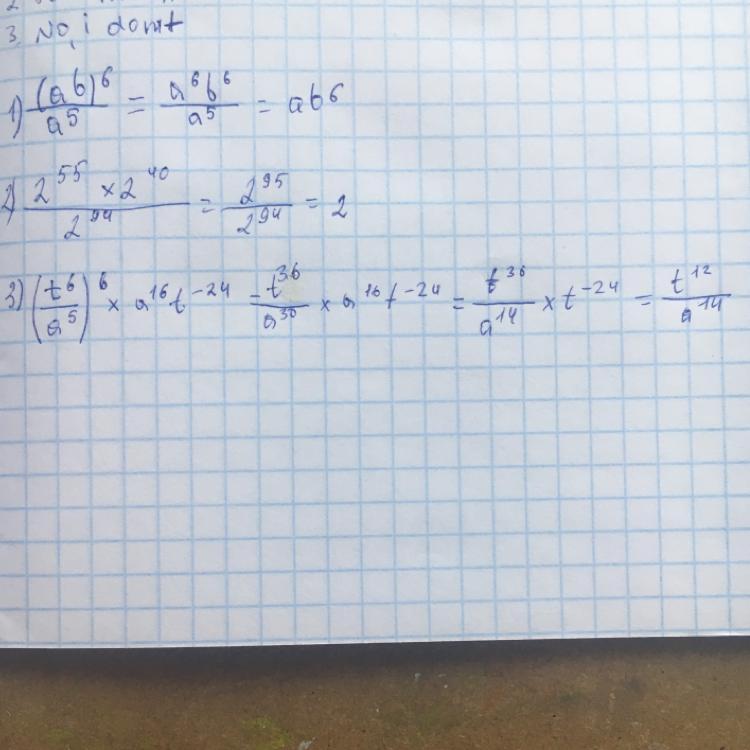 3. No, i dont
1) (ab)⁶/a⁵ = a⁶b⁶/a⁵ = ab⁶
2) 2⁵⁵ × 2⁴⁰/2⁹⁴ = 2⁹⁵/2⁹⁴ = 2
3) (t⁶/a⁵)⁶ × a¹⁶t⁻²⁴ = t³⁶/a³⁰ × a¹⁶t⁻²⁴ = t³⁶/a¹⁴ × t⁻²⁴ = t¹²/a¹⁴